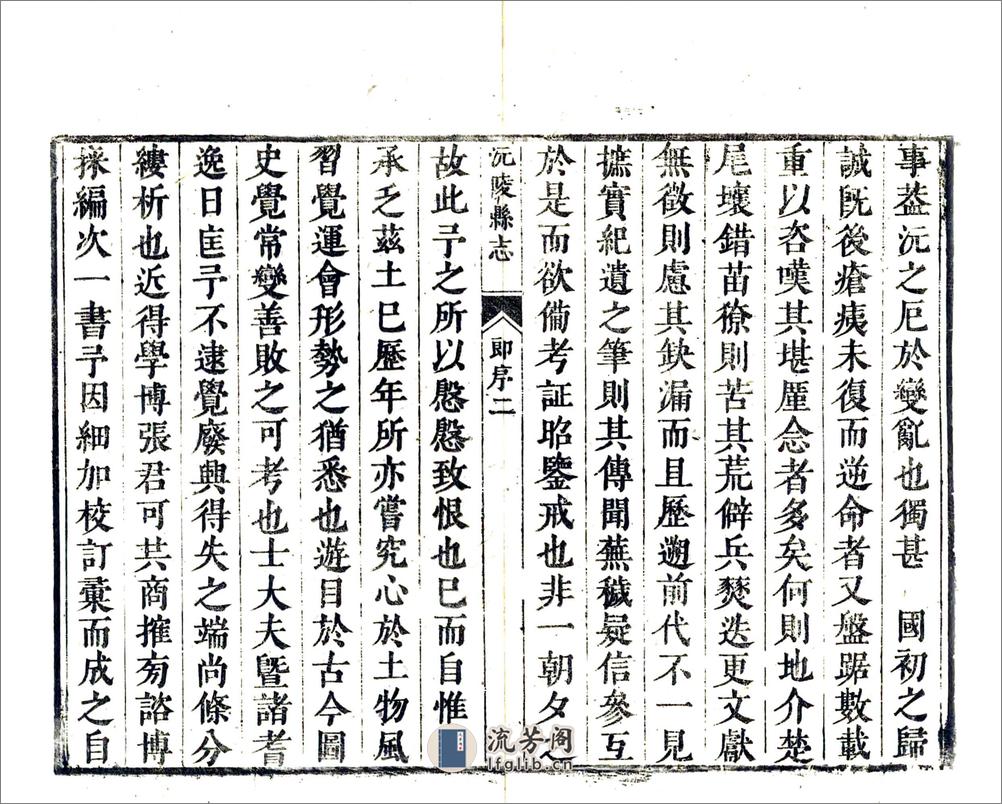 事葢沅之厄於變亂也獨甚　國初之歸
誠既後瘡痍未復而逆命者又盤踞數載
重以咨嘆其堪厪念者多矣何則地介楚
尾壤錯苗獠則苦其荒僻兵燹迭更文獻
無徵則慮其缺漏而且歷遡前代不一見
摭實紀遺之筆則其傳聞蕪穢疑信參互
於是而欲備考証昭鑒戒也非一朝夕之
沅陵縣志
郎序二
故此予之所以慇慇致恨也已而自惟
承乏茲土巳歷年所亦嘗究心於土物風
習覺運會形勢之猶悉也遊目於古今圖
史覺常變善敗之可考也士大夫曁諸耆
逸日匡予不逮覺廢興得失之端尚條分
縷析也近得學博張君可共商搉旁諮博
採編次一書予因細加校訂彙而成之自
流芳阁
lfglib.cn